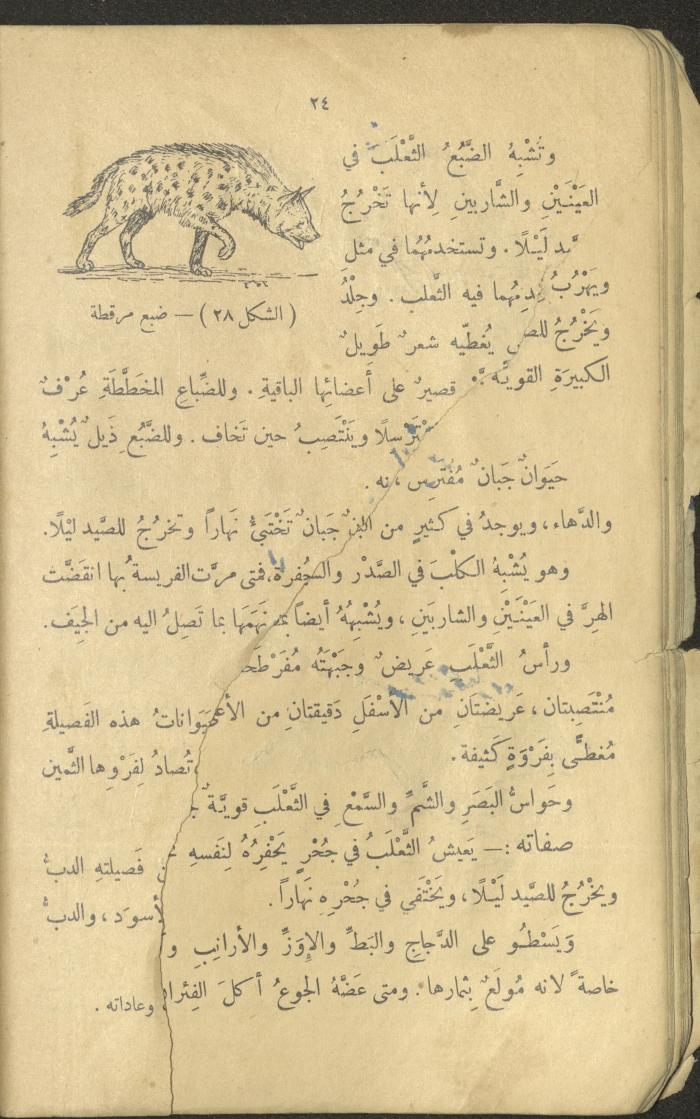 ٢٤
وتُشْبِهُ الضَّبُعُ الثَّعْلَبَ في
العَيْنَيْنِ والشَّاربينِ لِأنها تَخْرُجُ
يَّد لَيْلًا . وتستخدمُهُما في مثل
ويَهْرُبُ دِمُهما فيه الثَّعلب . وجِلْدُ
(الشكل ٢٨) — ضبع مرقطة
ويَخْرُجُ للص يُغطّيه شعرٌ طَويلٌ
الكبيرَةِ القويَّه قصيرٌ على أَعضائِها الباقيةِ . وللضِّباعِ المخَطَّطَةِ عُرْفٌ
تَرْسلًا ويَنْتَصِبُ حين تَخاف . وللضَّبُعِ ذَيلٌ يُشْبِهُ
حَيَوانٌ جَبانٌ مُفْتَرِس نه .
والدَّهاء ، ويوجدُ في كثيرٍ من جَبانٌ تَخْتَبئُ نَهاراً وتخرُجُ للصَّيد ليْلًا .
وهو يُشْبِهُ الكلْبَ في الصَّدْر والس ُفرة ، فمتى مرَّت الفريسةُ بها انقَضَّت
الهِرَّ في العَيْنَيْنِ والشاربَينِ ، ويُشْبِهُهُ أيضاً نَهَمَها بما تَصِلُ اليه من الجِيَف .
ورأسُ الثَّعْلَبِ عَريضٌ وجَبْهَتُه مُفَرْطَح
مُنْتَصِبتان ، عَريضتَانِ من الأسْفَلِ دَقيقتانِ من الأع حَيَواناتُ هذه الفَصيلةِ
مُغطًّى بِفَرْوَةٍ كَثيفة . تُصادُ لِفَرْوِها الثَّمين
وحَواسُّ البَصَرِ والشَّمِّ والسَّمْعِ في الثَّعْلَبِ قويَّةٌ ج
صفاته : — يَعيشُ الثَّعْلَبُ في جُحْرٍ يَحْفِرُهُ لِنَفسهِ ن فَصيلتِهِ الدبُّ
ويخْرُجُ للصَّيد لَيْلًا ، ويَخْتَفي في جُحْرِهِ نَهاراً . لأسوَد ، والدبُّ
وَيَسْطُو على الدَّجاجِ والبَطِّ والإِوَزِّ والأرانِبِ و
خاصةً لانه مُولَعٌ بِثمارها . ومتى عَضَّهُ الجوعُ أكلَ الفِئرا وعاداته .